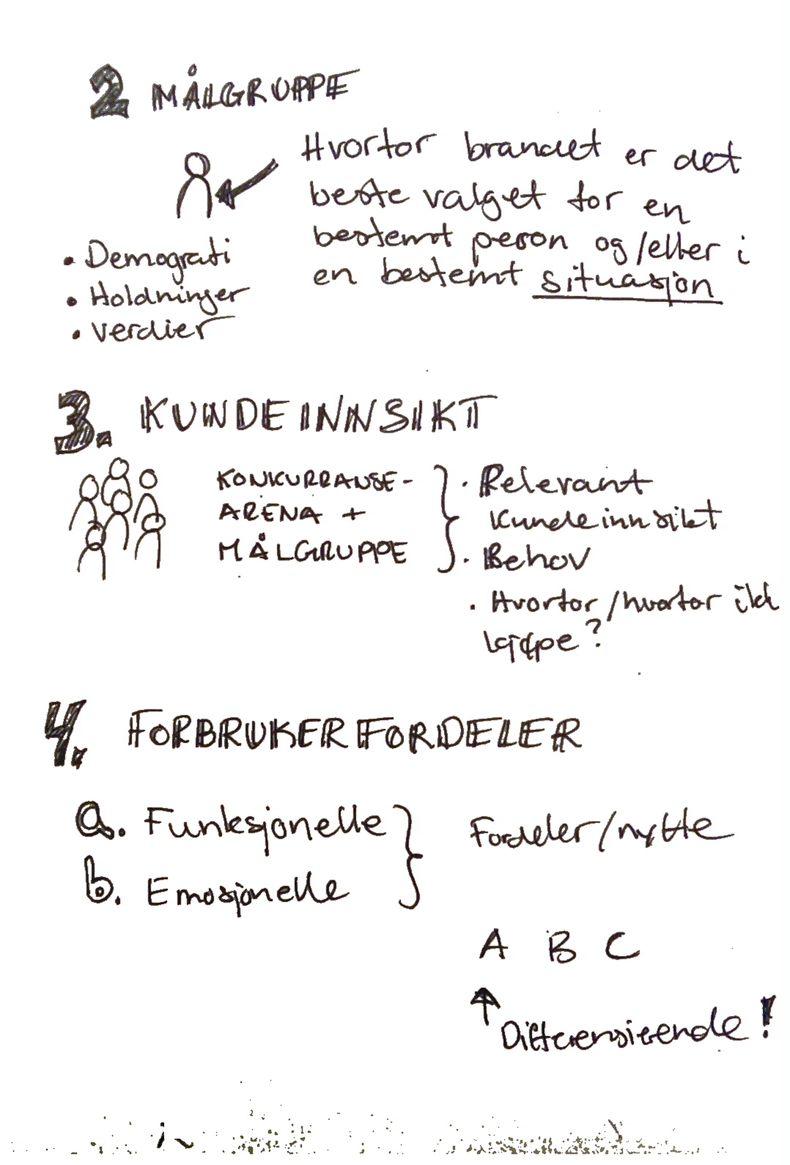 2 MÅLGRUPPE
Hvorfor brandet er det
beste valget for en
bestemt peron og/eller i
en bestemt situasjon
• Demografi
• Holdninger
• Verdier
3. KUNDEINNSIKT
KONKURRANSE-
ARENA +
MÅLGRUPPE
• Relevant
kundeinnsikt
• Behov
• Hvorfor/hvorfor ikke
kjøpe?
4. FORBRUKERFORDELER
a. Funksjonelle
b. Emosjonelle
Fordeler/nytte
A B C
Differensierende!